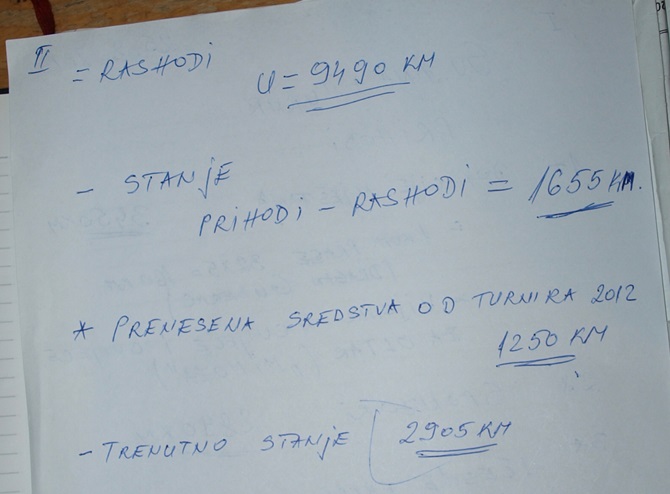 II = RASHODI U = 9490 KM
- STANJE
PRIHODI - RASHODI = 1655 KM.
* PRENESENA SREDSTVA OD TURNIRA 2012
1250 KM
- TRENUTNO STANJE 2905 KM